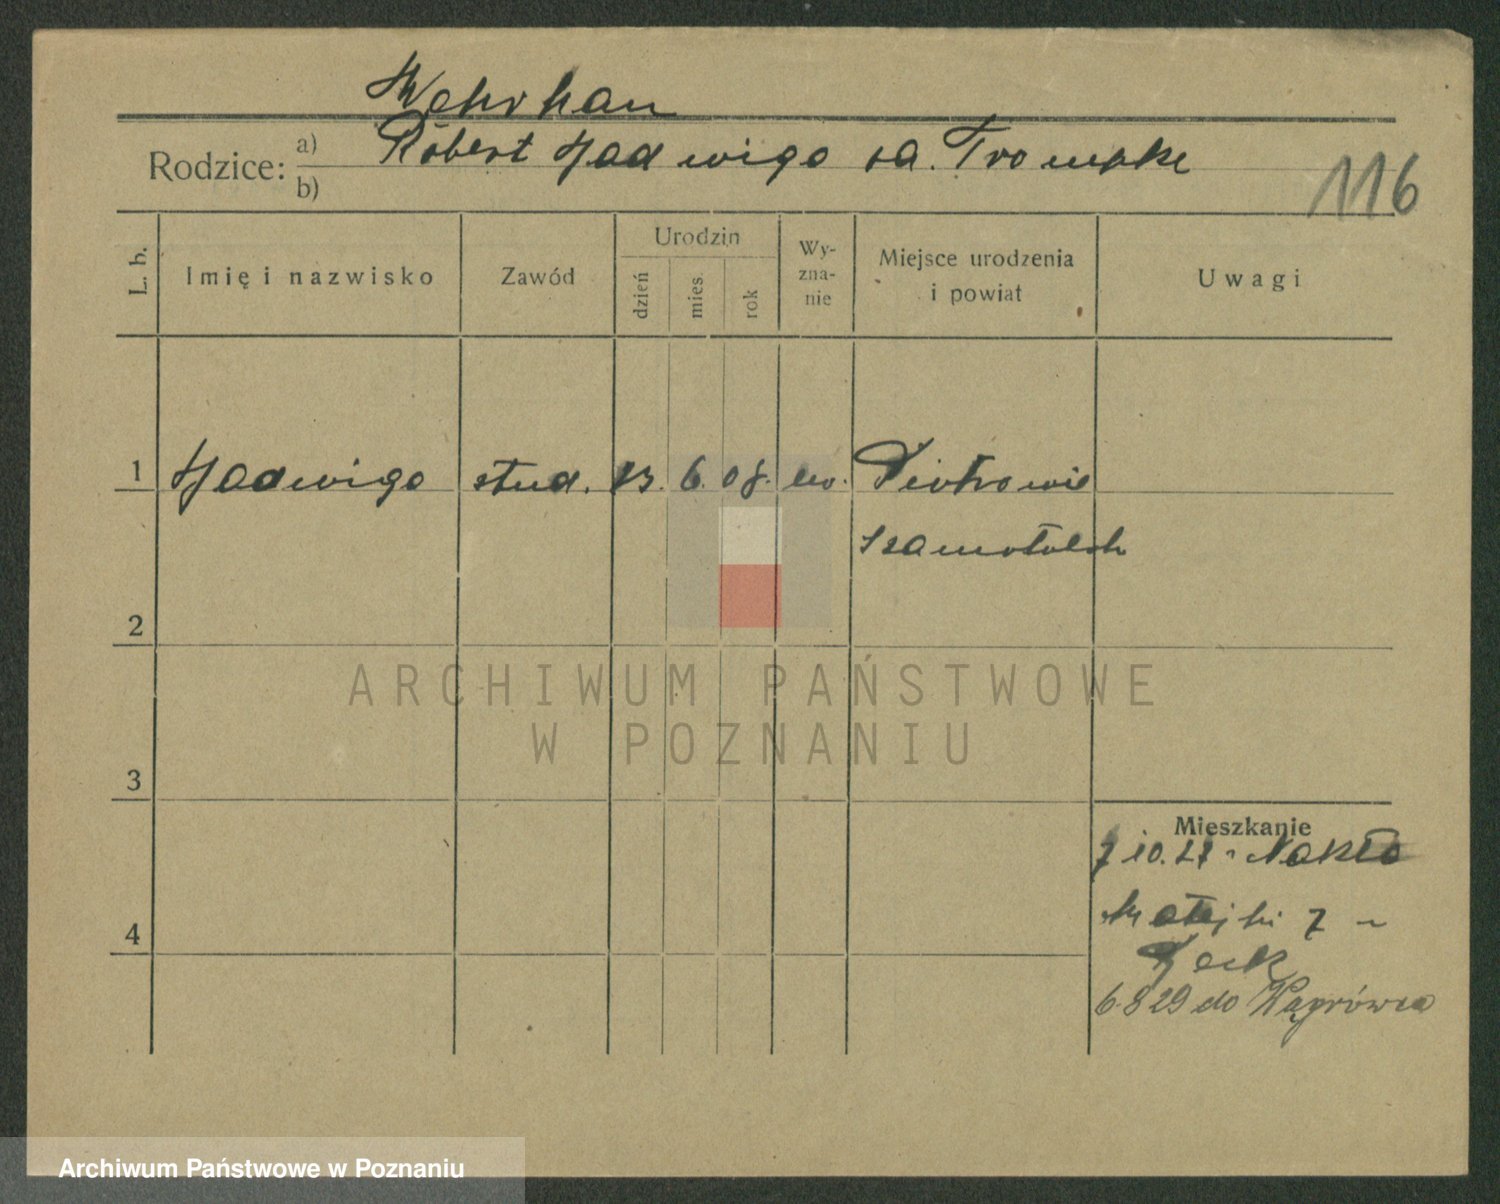 Wehrhan
Rodzice: a) Robert Jadwiga
b)
116
L. b.
Imię i nazwisko
Zawód
Urodzin
dzień
mies.
rok
Wy-
zna-
nie
Miejsce urodzenia
i powiat
Uwagi
1 Jadwiga stud. 13. 6. 08. ew. Piotrowie
2
3
4
Mieszkanie
Nakło
Matejki 7
6.8 29 do Wągrówca
ARCHIWUM PAŃSTWOWE
W POZNANIU
Archiwum Państwowe w Poznaniu